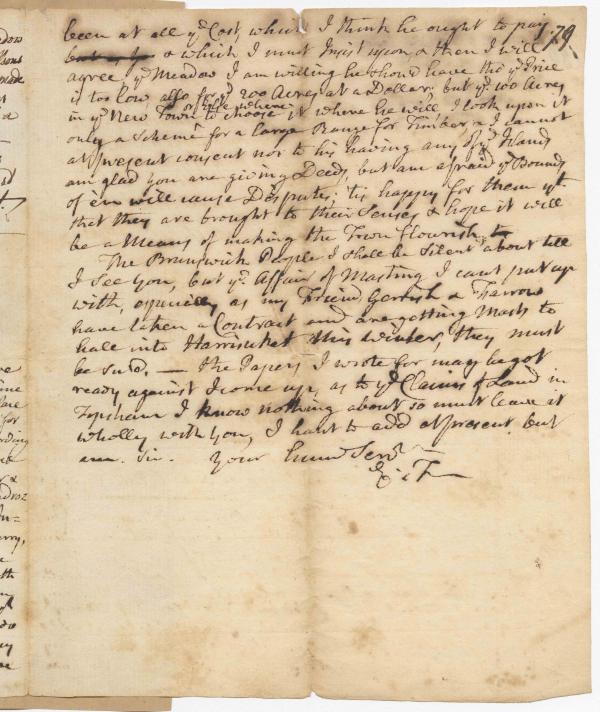 79
been at all yͤ Cost, which I think he ought to pay
& which I must Insist upon & then I will
agree yͤ Meadow I am willing he should have tho yͤ Price
is too low, also for yͤ 200 Acres at a Dollar: but yͤ 100 Acres
or Else where
in yͤ New Town to choose it where he will I look upon it
only a Scheme for a large Range for Timber & I cannot
at present consent nor to his having any of yͤ Island
am glad you are giving Deeds, but am afraid yͤ Bounds
of em will cause Disputes, 'tis happy for them yͭ
that they are brought to their Senses & hope it will
be a Means of making the Town flourish
The Brunswick People I shall be Silent about till
I See you, but yͤ Affair of Masting I cant put up
with, especially as my Friend Gerrish & Farrow
have taken a Contract and are getting Masts to
hale into Harrisicket this Winter, they must
be Sued, — the Papers I wrote for may be got
ready against I come up, as to yͤ Claims of Land in
Topsham I know nothing about so must leave it
wholly with you, I have to add at present but
am. Sir. Your hum Servͭ